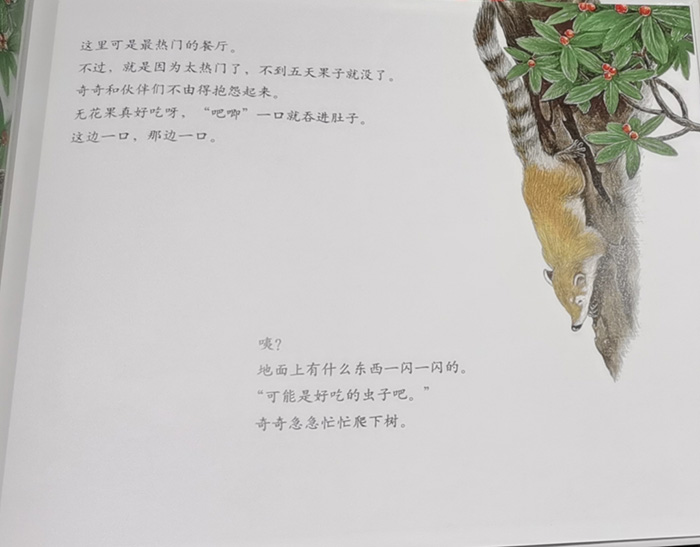 这里可是最热门的餐厅。
不过，就是因为太热门了，不到五天果子就没了。
奇奇和伙伴们不由得抱怨起来。
无花果真好吃呀，“吧唧”一口就吞进肚子。
这边一口，那边一口。
咦？
地面上有什么东西一闪一闪的。
“可能是好吃的虫子吧。”
奇奇急急忙忙爬下树。